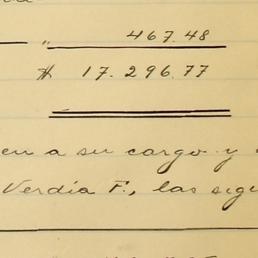 " 467.48
$ 17.296.77
en a su cargo y
Verdía F., las sigu